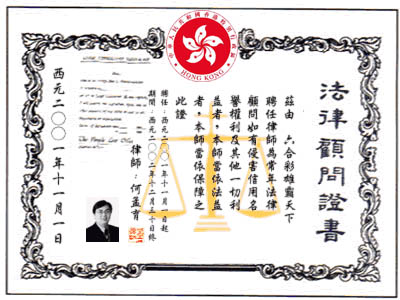 中華人民共和國香港特別行政區
HONG KONG
法律顧問證書
茲由 六合彩雄霸天下
聘任律師為常年法律
顧問如有侵害信用名
譽權利及其他一切利
益者,本師當依法益
者,本師當依保障之
此證
聘任:西元二〇〇一年十一月一日起
期間:西元二〇〇二年十二月三十日終
律師:何孟育
The People Law Office
西元二〇〇一年十一月一日